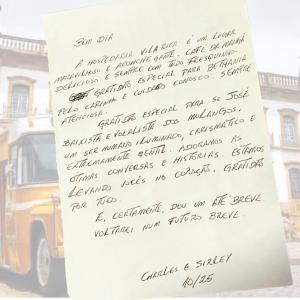 BOM DIA
A HOSPEDARIA VILA RICA É UM LUGAR
MARAVILHOSO E ACONCHEGANTE. CAFÉ DA MANHÃ
DELICIOSO E SEMPRE COM TUDO FRESQUINHO.
GRATIDÃO ESPECIAL PARA BETHANIA
PELO CARINHO E CUIDADO CONOSCO. SEMPRE
ATENCIOSA.
GRATIDÃO ESPECIAL PARA SR JOSÉ
BAIXISTA E VOCALISTA DOS MULANGOS,
UM SER HUMANO ILUMINADO, CARISMÁTICO E
EXTREMAMENTE GENTIL. ADORAMOS AS
ÓTIMAS CONVERSAS E HISTÓRIAS. ESTAMOS
LEVANDO VOCÊS NO CORAÇÃO. GRATIDÃO
POR TUDO.
E, CERTAMENTE, DOU UM ATÉ BREVE.
VOLTAREI NUM FUTURO BREVE.
CHARLES E SIRLEY
10/25